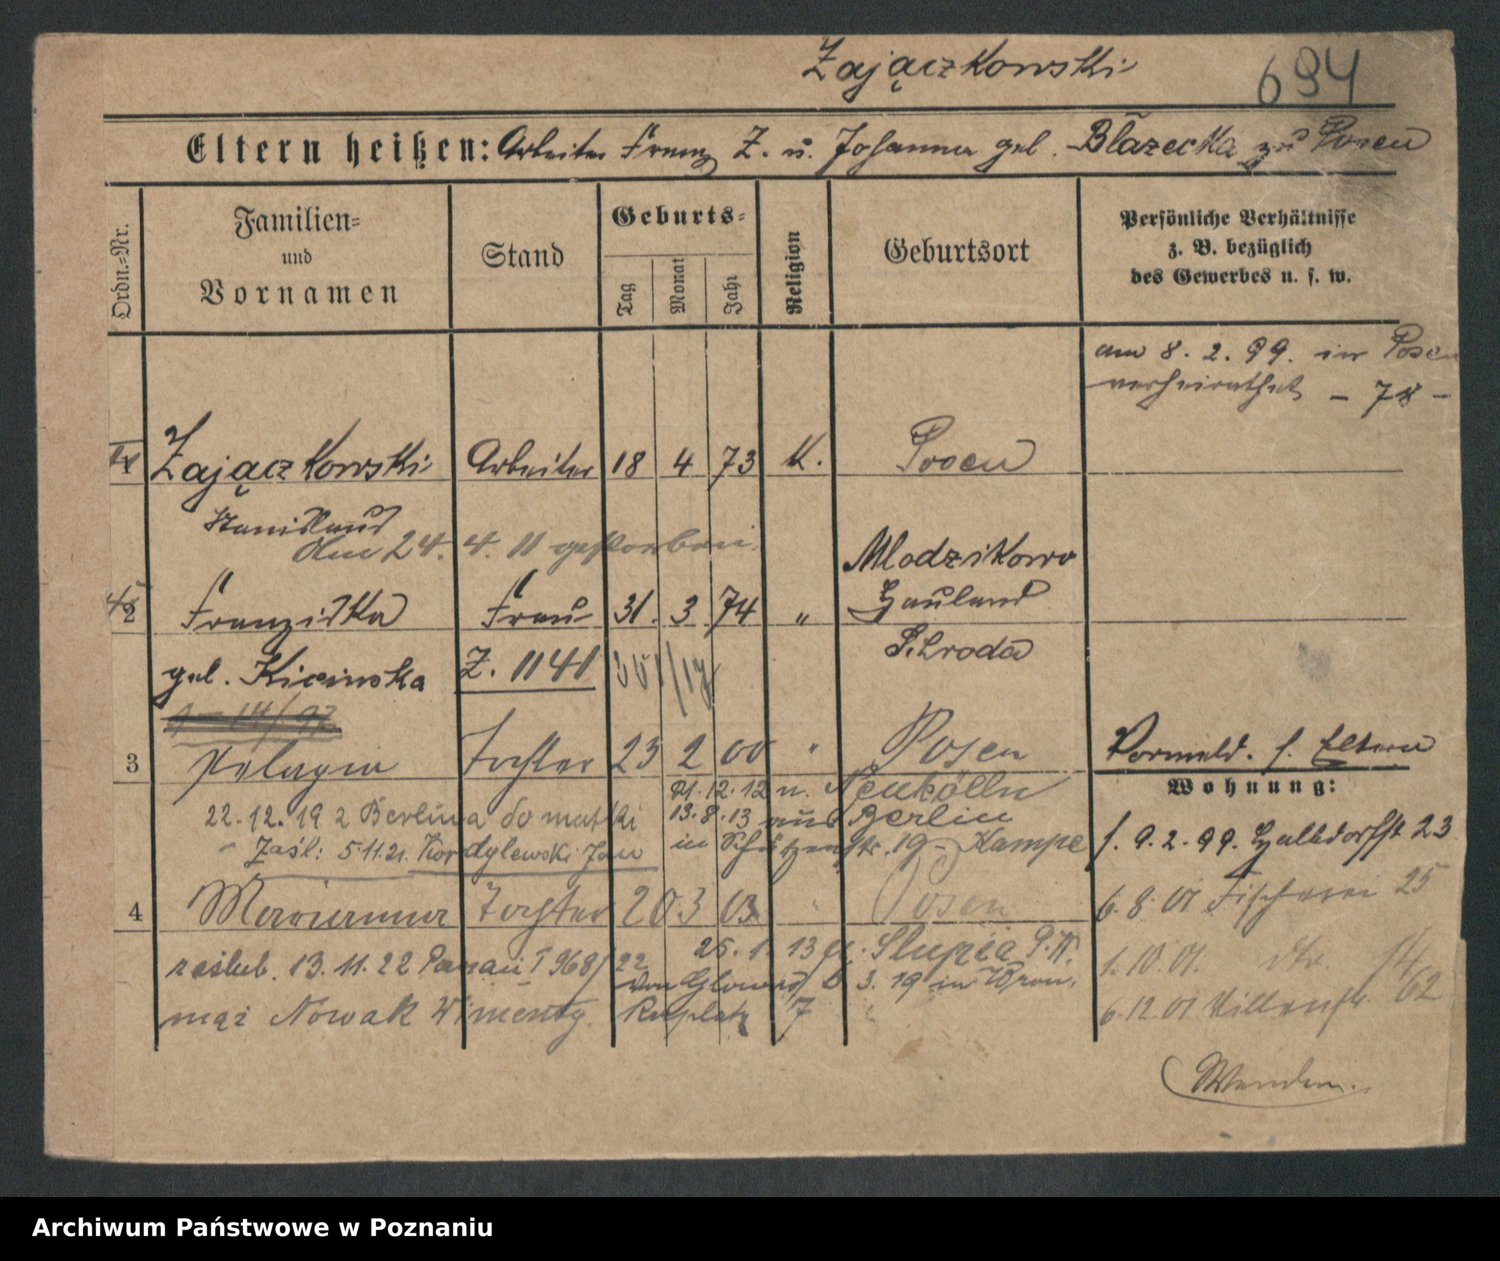 Zajączkowski 694
Eltern heißen: Arbeiter Franz Z. u. Johanna geb. Błazecka zu Posen
Ordn.-Nr.
Familien-
und
Vornamen
Stand
Geburts-
Tag
Monat
Jahr
Religion
Geburtsort
Persönliche Verhältnisse
z. B. bezüglich
des Gewerbes u. s. w.
am 8. 2. 99. in Posen
verheirathet - 78 -
1 Zajączkowski Arbeiter 18 4 73 K. Posen
Stanislaus
Am 24. 4. 11 gestorben.
Mlodzikowo
2 Franziska Frau 31. 3 74 "
Hauland
geb. Kicinska Z. 1141
Schroda
3 Pelagia Tochter 23 2 00 " Posen
Vormeld. s. Eltern
Wohnung:
21. 12. 12 n. Neukölln
22. 12. 19 z Berlina do matki
13. 8. 13 aus Berlin
Zaśl: 5 11. 21. Kordylewski Jan
in Schützenstr. 19 - Kampe
f. 9. 2. 99. Halbdorfstr 23
4 Marianna Tochter 20 3 03 " Posen
6. 8. 01 Fischerei 25
zaślub. 13. 11. 22 Poznań 968/22
25. 1. 13 n. Slupia
1. 10. 01. dto 14
mąż Nowak Wincenty.
3. 19 in Wron.
7
6. 12. 01
62
Archiwum Państwowe w Poznaniu